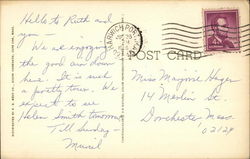 Hello to Ruth and
you —
We are enjoying
the good air down
here. It is such
a pretty town. We
expect to see
Helen Smith tomorrow
Till Sunday —
Muriel
HARWICH PORT
POST CARD
Miss Marjorie Hager
14 Merlin St.
Dorchester Mass
02124